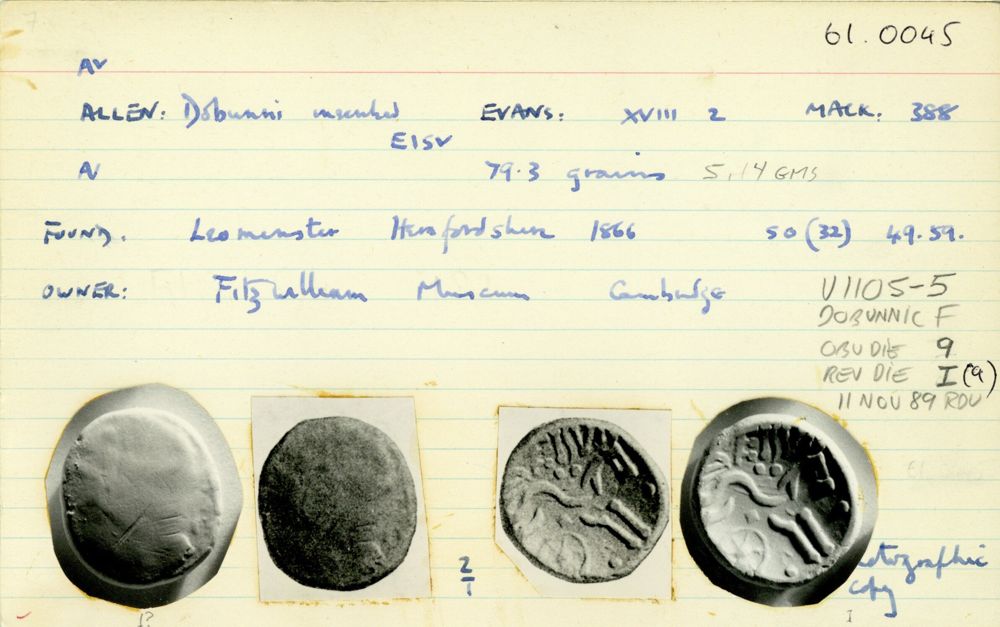 61.0045
AV
ALLEN: Dobunni inscribed EVANS: XVIII 2 MACK: 388
EISV
AV 79.3 grains 5.14 GMS
FOUND. Leominster Herefordshire 1866 SO (32) 49.59.
OWNER: Fitzwilliam Museum Cambridge
V1105-5
DOBUNNIC F
OBV DIE 9
REV DIE I (9)
11 NOV 89 RDV
2/1
otographic
copy
I